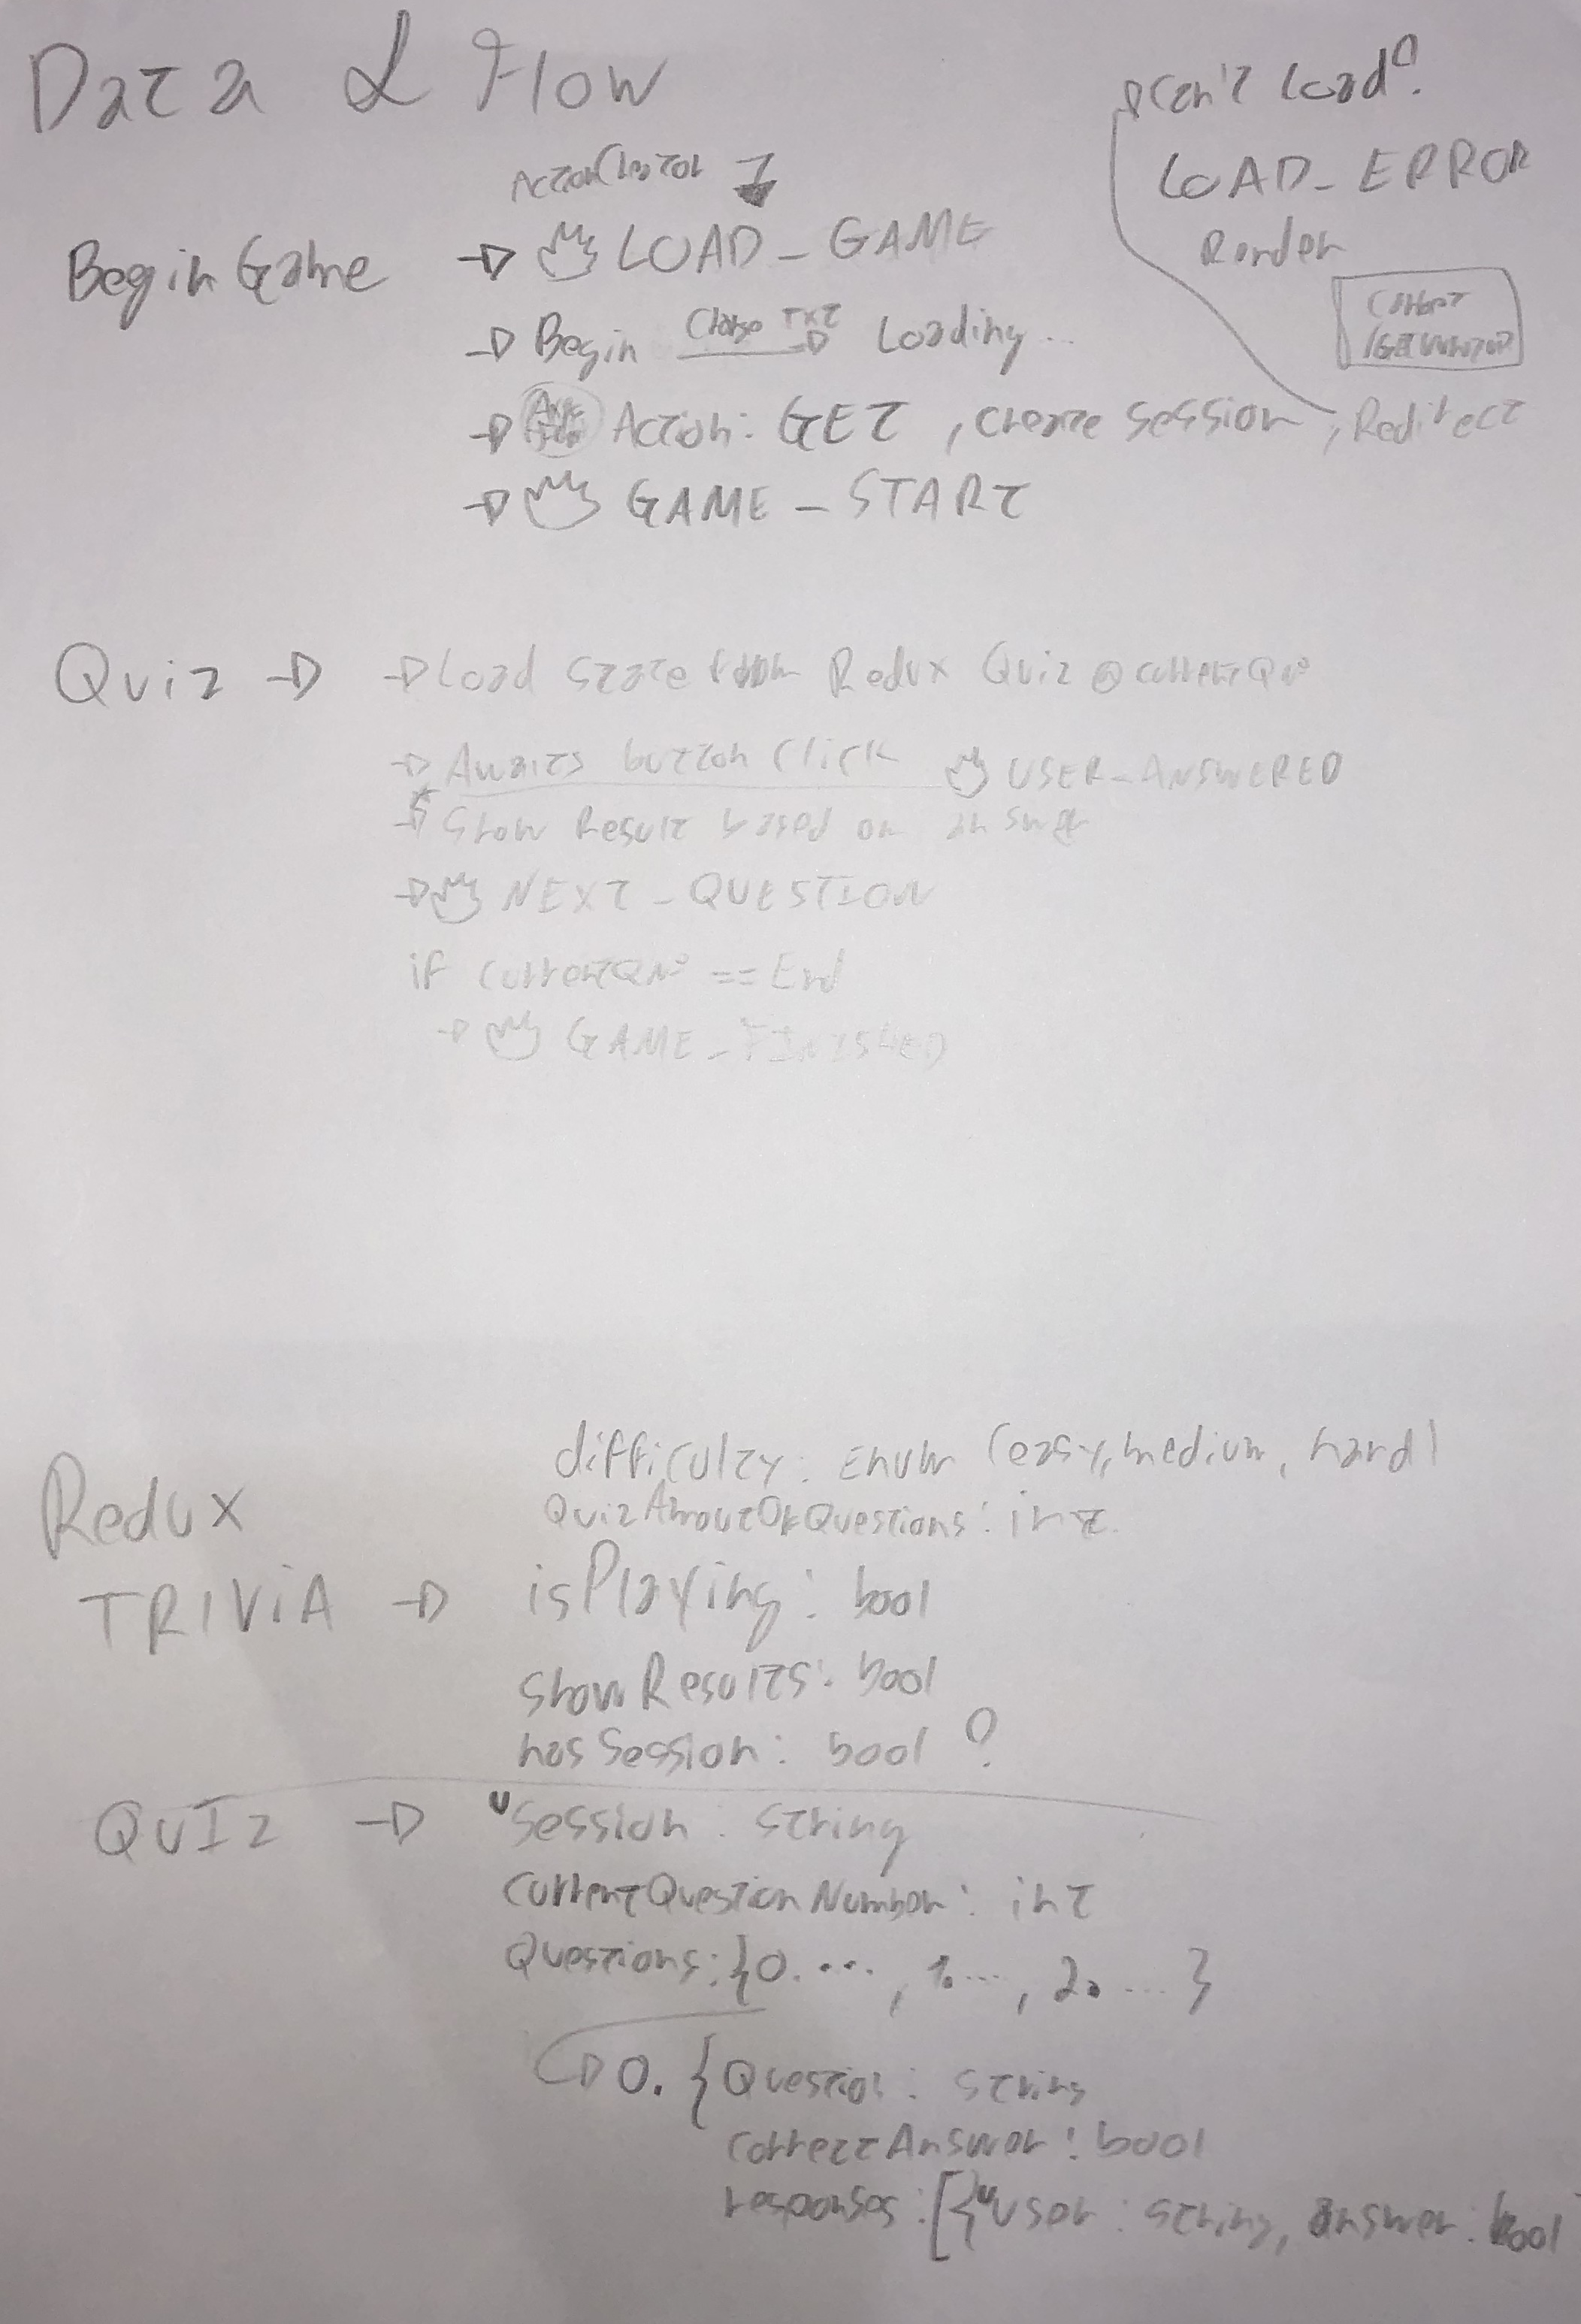 Data & Flow
Can't Load?
LOAD_ERROR
Render
ActionCreator
Begin Game → LOAD_GAME
→ Begin Change TXT → Loading...
→ Action: GET, create session, Redirect
→ GAME_START
Quiz → → Load state from Redux Quiz @ currentQNº
→ Awaits button click USER_ANSWERED
* → Show Result based on answer
→ NEXT_QUESTION
if currentQNº == End
→ GAME_FINISHED
Redux
difficulty: Enum (easy, medium, hard)
QuizAmoutOfQuestions: int
TRIViA → isPlaying: bool
showResults: bool
hasSession: bool ?
QUIz → Session: string
currentQuestionNumber: int
Questions: {0. ..., 1. ..., 2. ... }
→ 0. {Question: string
correctAnswer: bool
responses: [{ user: string, answer: bool